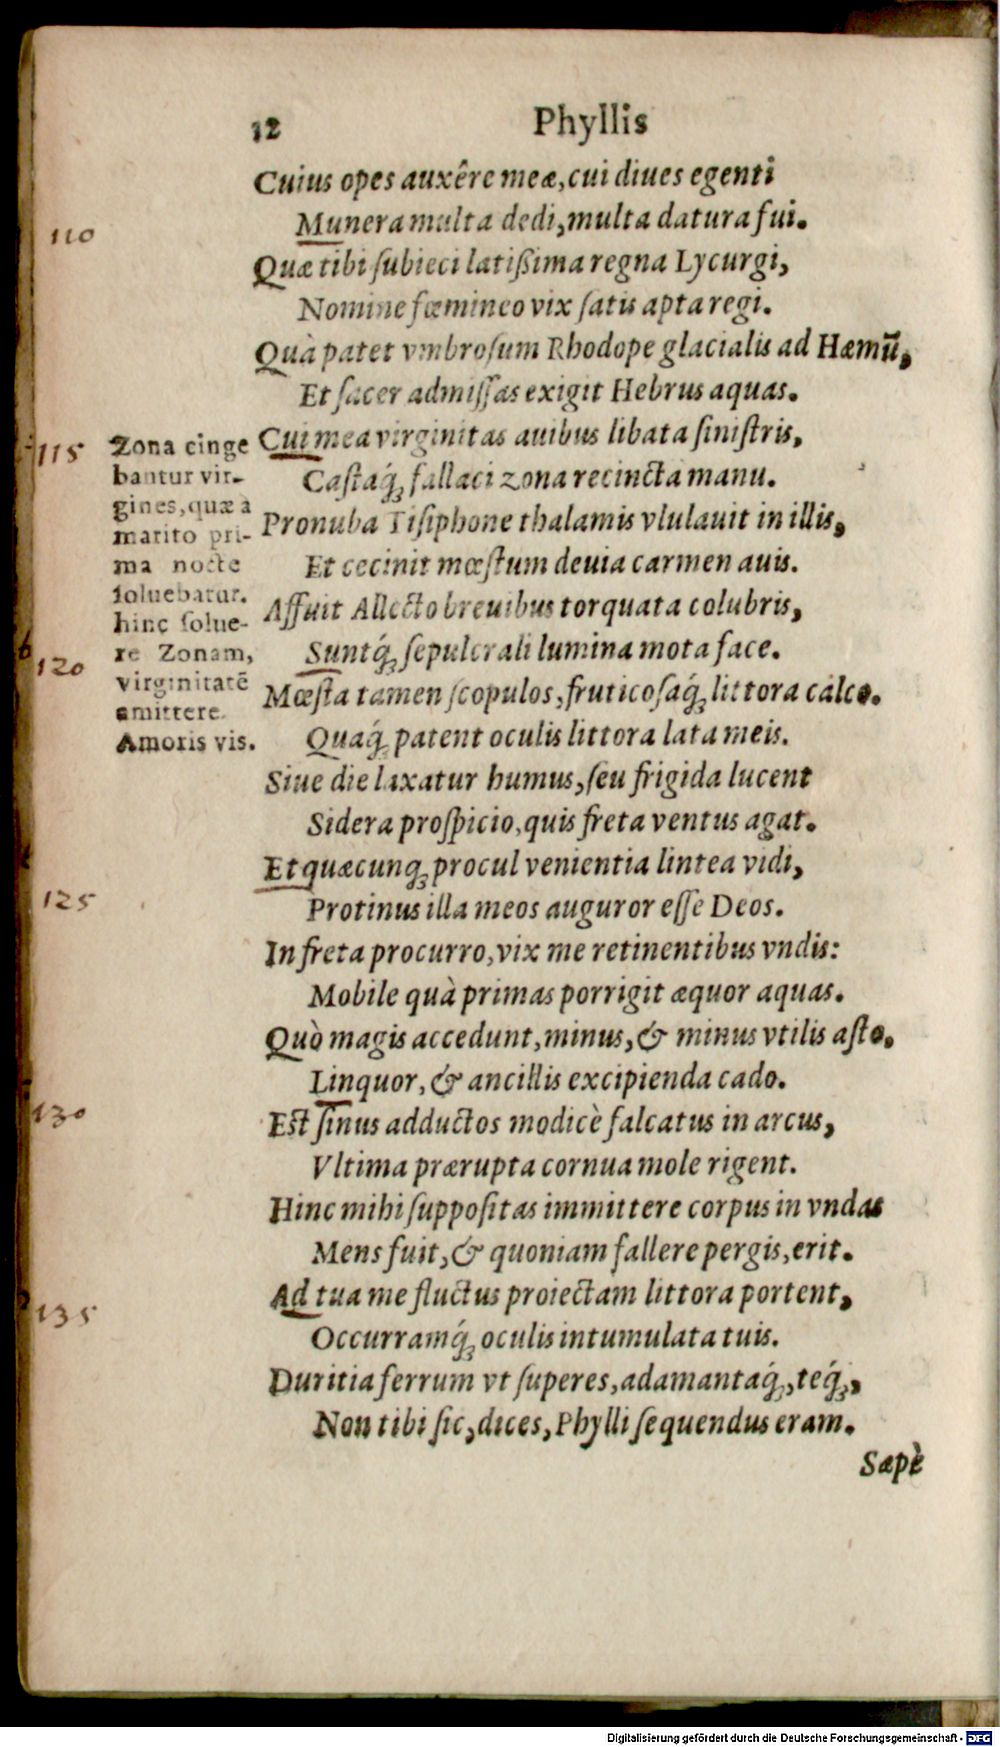 12 Phyllis
Cuius opes auxêre meæ, cui diues egenti
Munera multa dedi, multa datura fui.
110
Quæ tibi ſubieci latißima regna Lycurgi,
Nomine fœmineo vix ſatis apta regi.
Quà patet vmbroſum Rhodope glacialis ad Hæmū,
Et ſacer admiſſas exigit Hebrus aquas.
Cui mea virginitas auibus libata ſiniſtris,
115
Caſtaq́; fallaci zona recincta manu.
Pronuba Tiſiphone thalamis vlulauit in illis,
Et cecinit mœſtum deuia carmen auis.
Affuit Allecto breuibus torquata colubris,
Suntq́; ſepulcrali lumina mota face.
120
Mœſta tamen ſcopulos, fruticoſaq́; littora calco.
Quaq́; patent oculis littora lata meis.
Siue die laxatur humus, ſeu frigida lucent
Sidera proſpicio, quis freta ventus agat.
Et quæcunq; procul venientia lintea vidi,
125
Protinus illa meos auguror eſſe Deos.
In freta procurro, vix me retinentibus vndis:
Mobile quà primas porrigit æquor aquas.
Quò magis accedunt, minus, & minus vtilis aſto.
Linquor, & ancillis excipienda cado.
130
Est ſinus adductos modicè falcatus in arcus,
Vltima prærupta cornua mole rigent.
Hinc mihi ſuppoſitas immittere corpus in vndas
Mens fuit, & quoniam fallere pergis, erit.
Ad tua me fluctus proiectam littora portent,
135
Occurramq́; oculis intumulata tuis.
Duritia ferrum vt ſuperes, adamantaq́;, teq́;,
Non tibi ſic, dices, Phylli ſequendus eram.
Sæpè
Zona cinge
bantur vir-
gines, quæ à
marito pri-
ma nocte
ſoluebatur.
hinc ſolue-
re Zonam,
virginitatē
amittere.
Amoris vis.
Digitalisierung gefördert durch die Deutsche Forschungsgemeinschaft - DFG